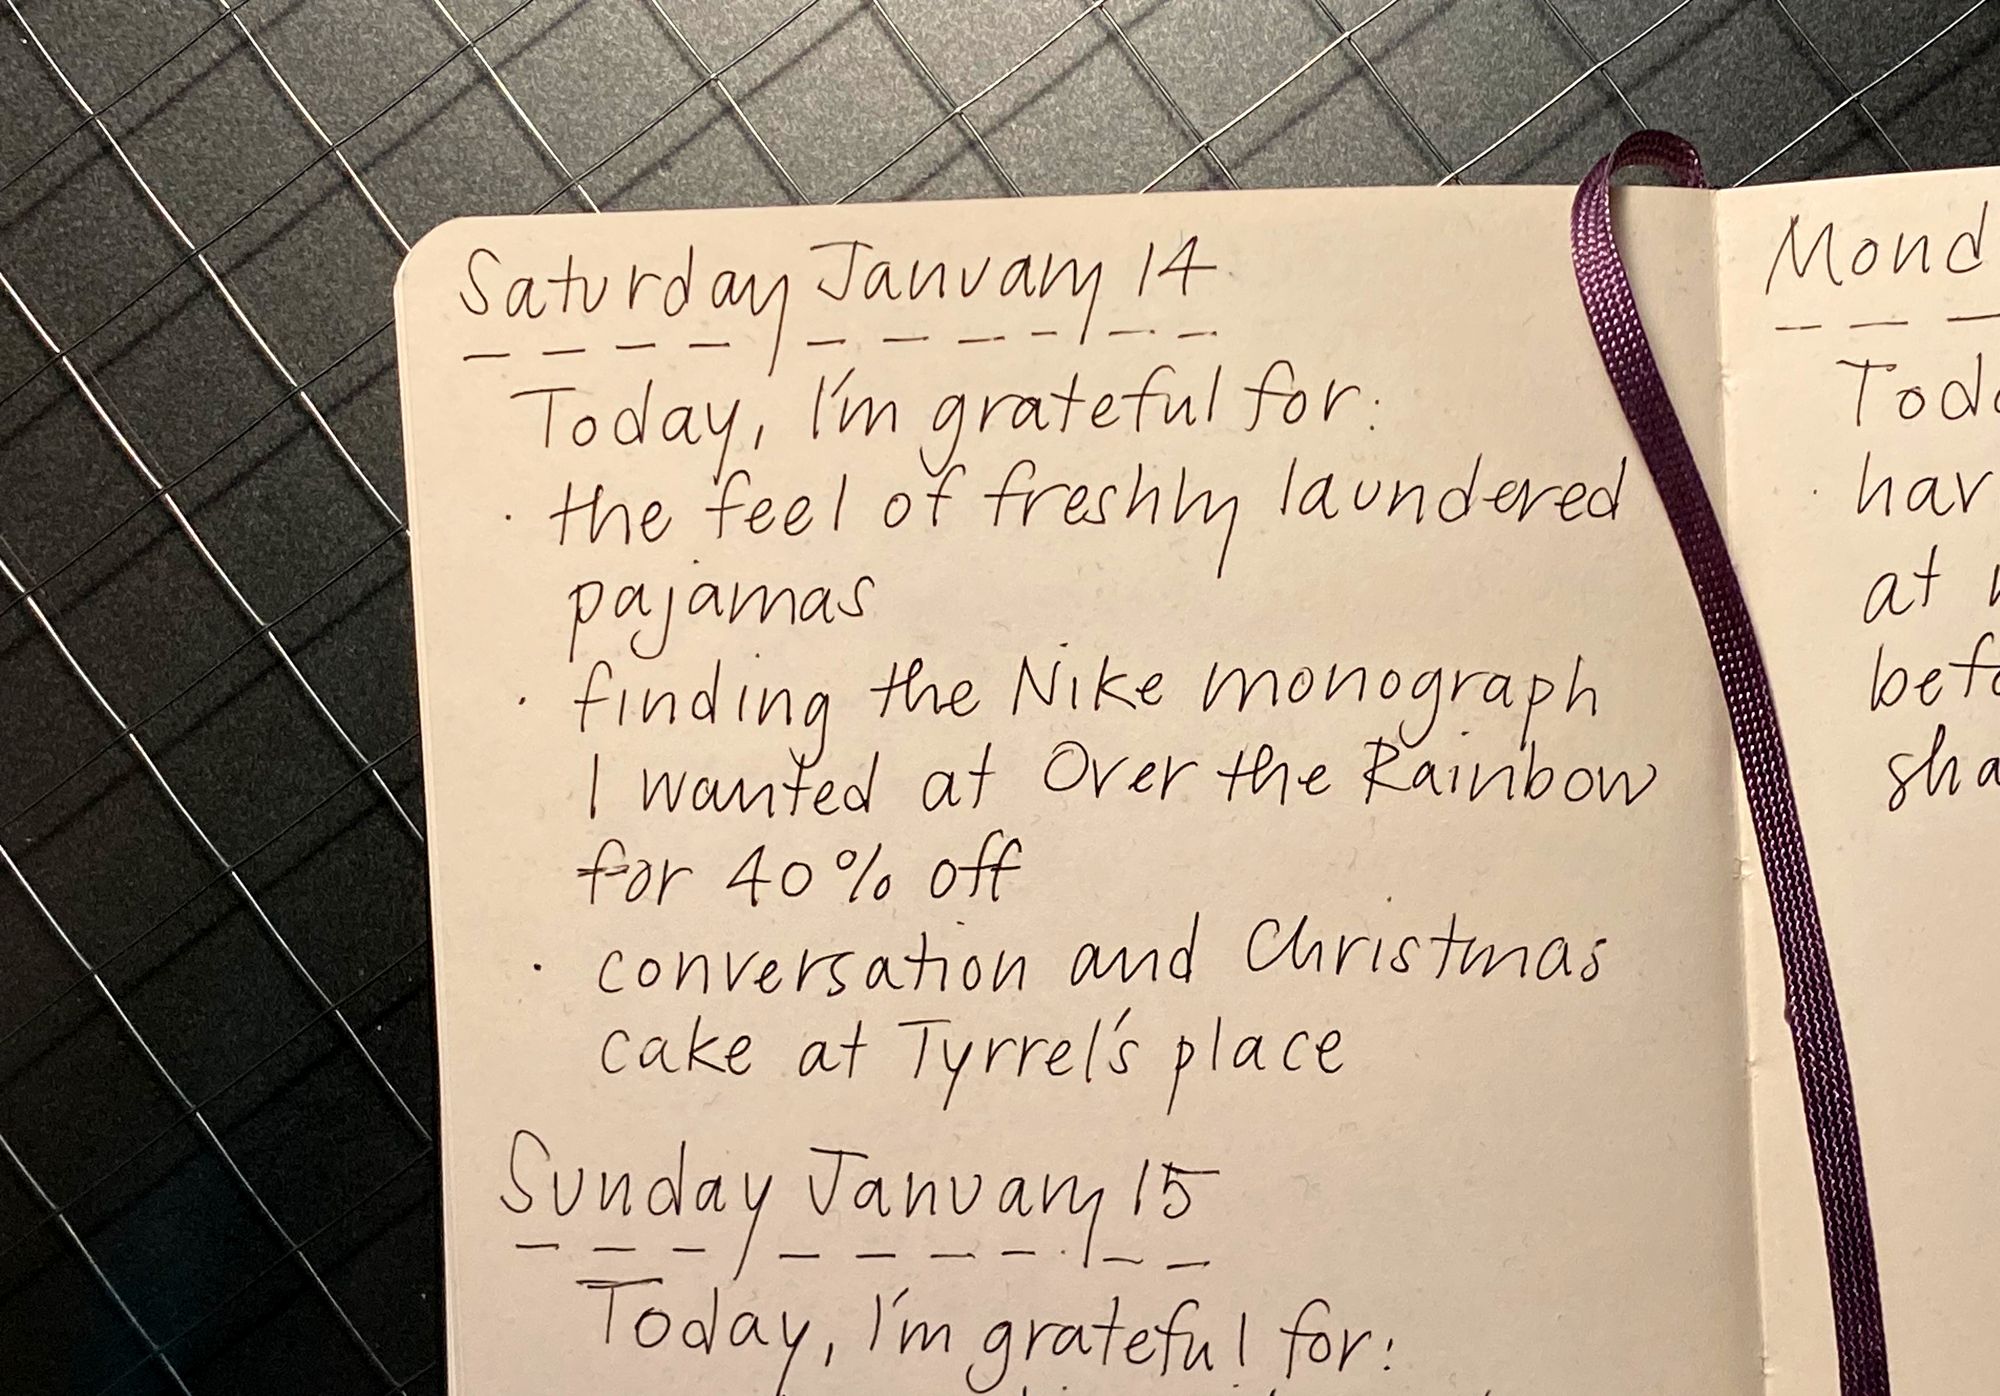 Saturday January 14
Today, I'm grateful for:
· the feel of freshly laundered
pajamas
· finding the Nike monograph
I wanted at Over the Rainbow
for 40% off
· conversation and Christmas
cake at Tyrrel's place
Sunday January 15
Today, I'm grateful for:
Mond
Tod
· har
at
befo
sha